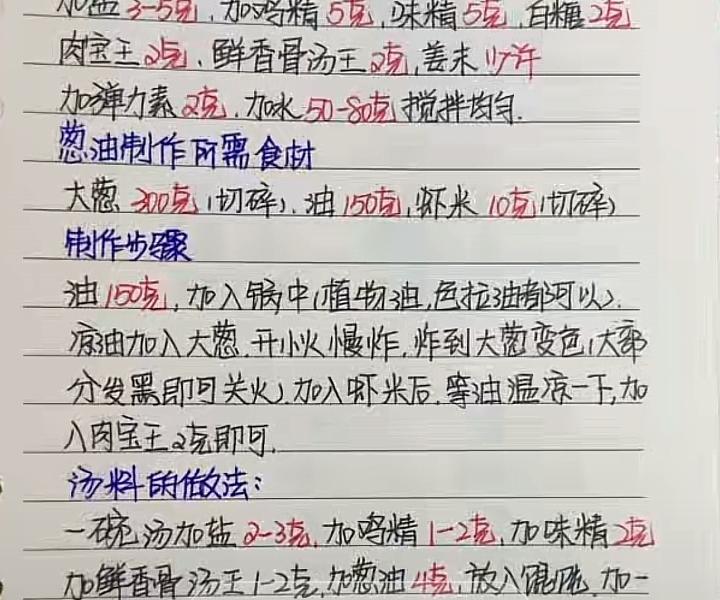 加盐3-5克,加鸡精5克,味精5克,白糖2克
肉宝王2克、鲜香骨汤王2克,姜末少许
加弹力素2克.加水50-80克搅拌均匀.
葱油制作所需食材
大葱300克(切碎).油150克,虾米10克(切碎)
制作步骤
油150克,加入锅中(植物油,色拉油都可以).
凉油加入大葱.开小火慢炸.炸到大葱变色(大部
分发黑即可关火).加入虾米后.等油温凉一下,加
入肉宝王2克即可.
汤料的做法:
一碗汤加盐2-3克,加鸡精1-2克,加味精2克
加鲜香骨汤王1-2克,加葱油4克,放入馄饨.加一